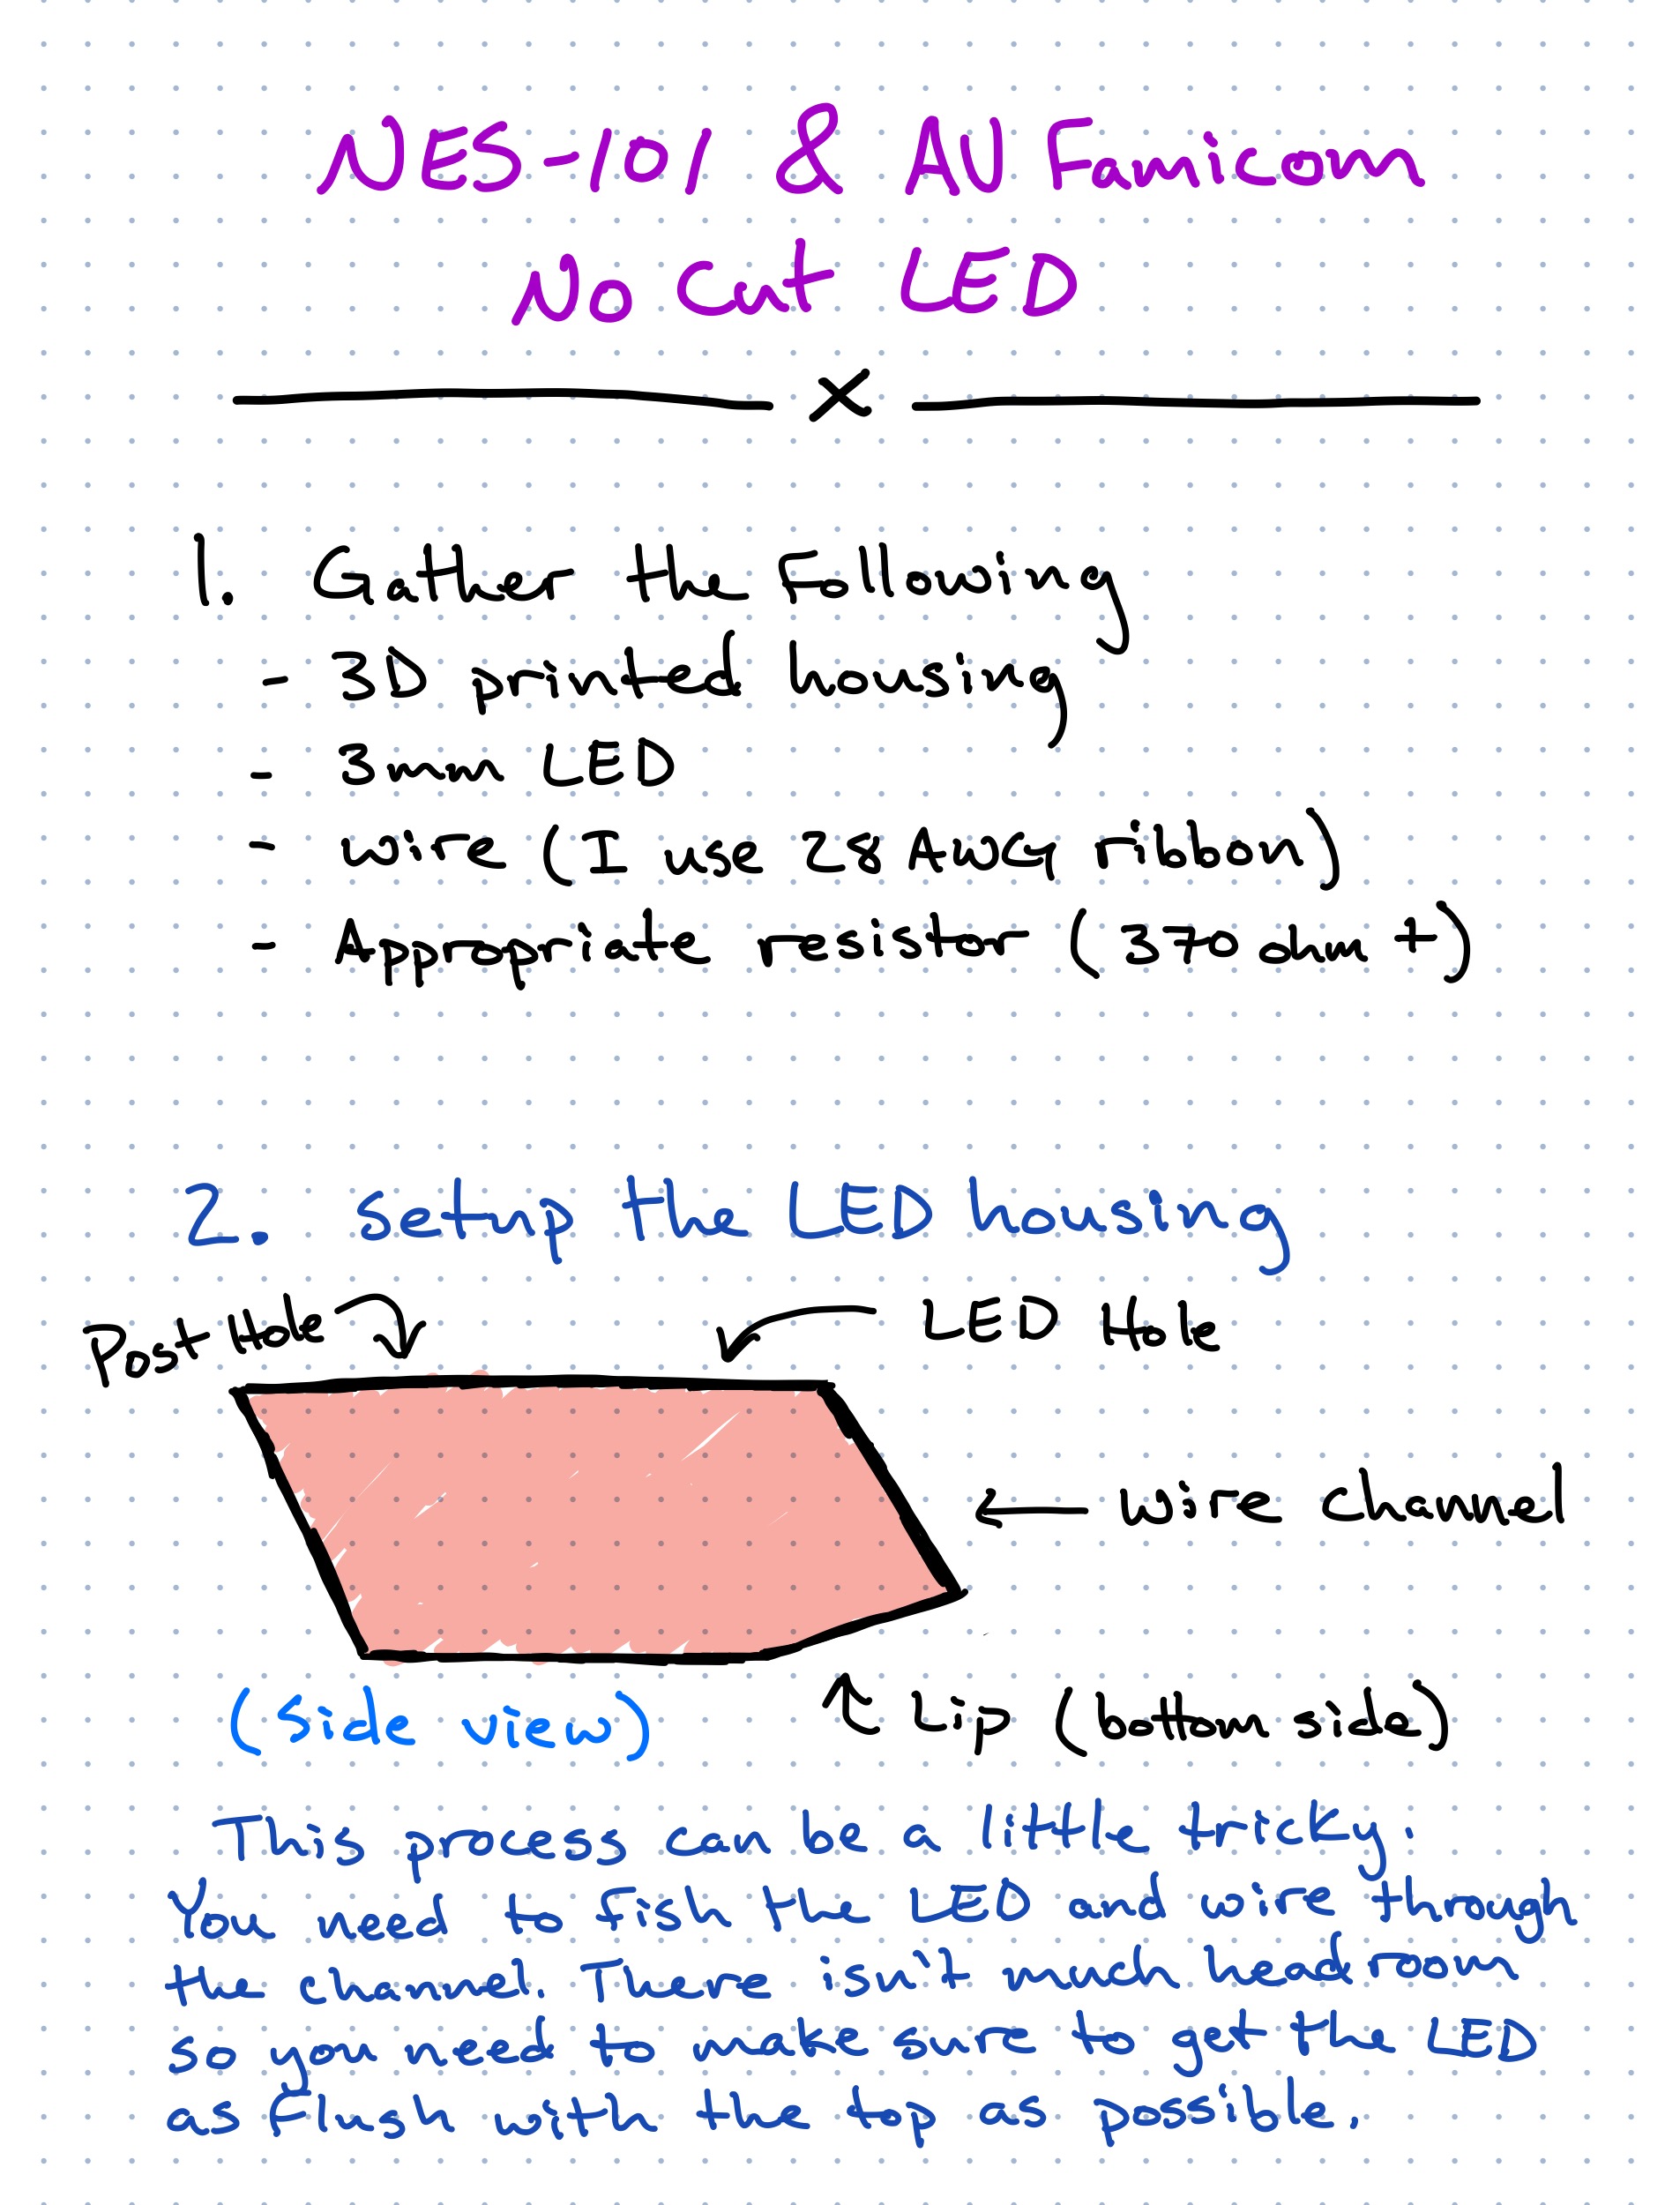 NES-101 & AV Famicom
No Cut LED
x
1. Gather the Following
- 3D printed housing
- 3mm LED
- wire (I use 28 AWG ribbon)
- Appropriate resistor (370 ohm +)
2. setup the LED housing
Post Hole
LED Hole
wire channel
(side view)
Lip (bottom side)
This process can be a little tricky.
You need to fish the LED and wire through
the channel. There isn't much headroom
so you need to make sure to get the LED
as flush with the top as possible.